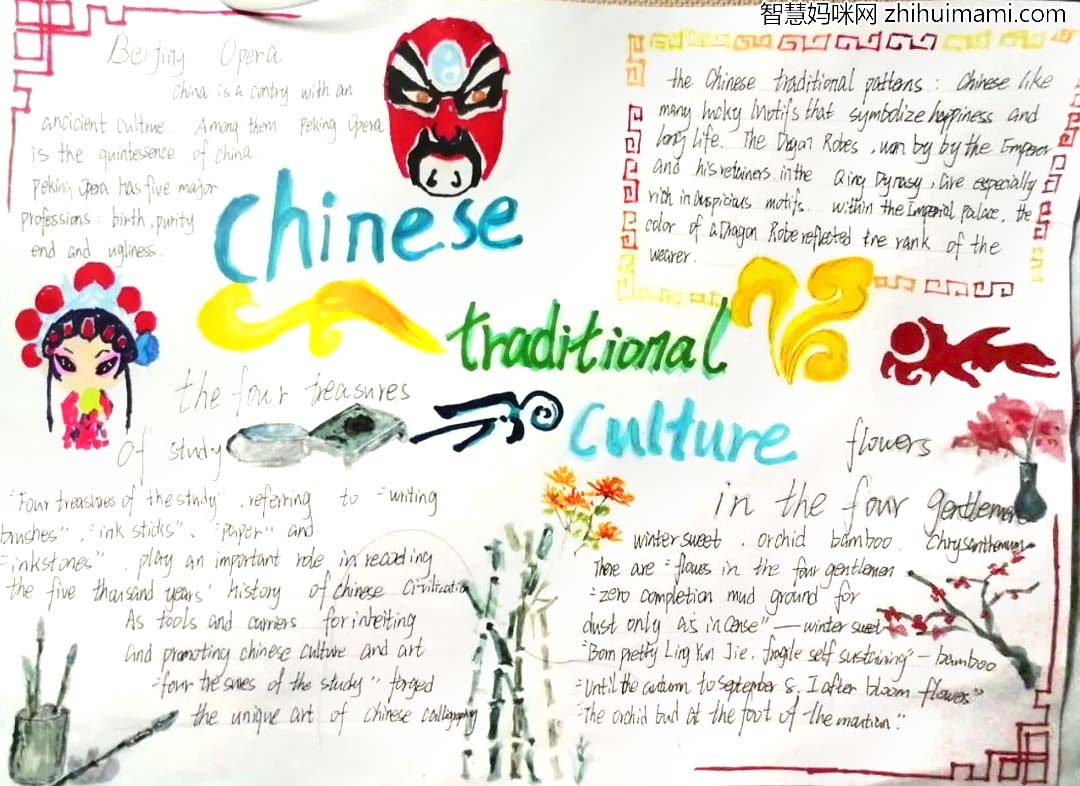 智慧妈咪网 zhihuimami.com
Beijing Opera
China is a contry with an
ancicient culture. Among them peking Opera
is the quintessence of china
peking Opera has five major
professions: birth, purity
end and ugliness.
the Chinese traditional patterns: Chinese like
many lucky Motifs that symbolize happiness and
long life. The Dragon Robes, worn by by the Emperor
and his retainers in the Qing Dynasy, are especially
rich in auspicious motifs. within the Imperial palace, the
color of a Dragon Robe reflected the rank of the
wearer.
Chinese
traditional
culture
the four treasures
Of study
"Four treasures of the study", referring to "writing
brushes", "ink sticks", "paper" and
"inkstones", play an important role in recording
the five thousand years' history of chinese Civilization
As tools and carriers for inheiting
and promoting chinese culture and art
"four tresures of the study" forged
the unique art of chinese calligraphy
flowers
in the four gentlemen
winter sweet, orchid bamboo. Chrysanthemum
There are "flowes in the four gentlemen
"zero completion mud ground for
dust only as incense" — winter sweet
"Born pretty Ling Yun Jie, fragile self sustaining" — bamboo
"Until the autumn to september 8, I after bloom flowers"
"The orchid bud at the foot of the mountion."